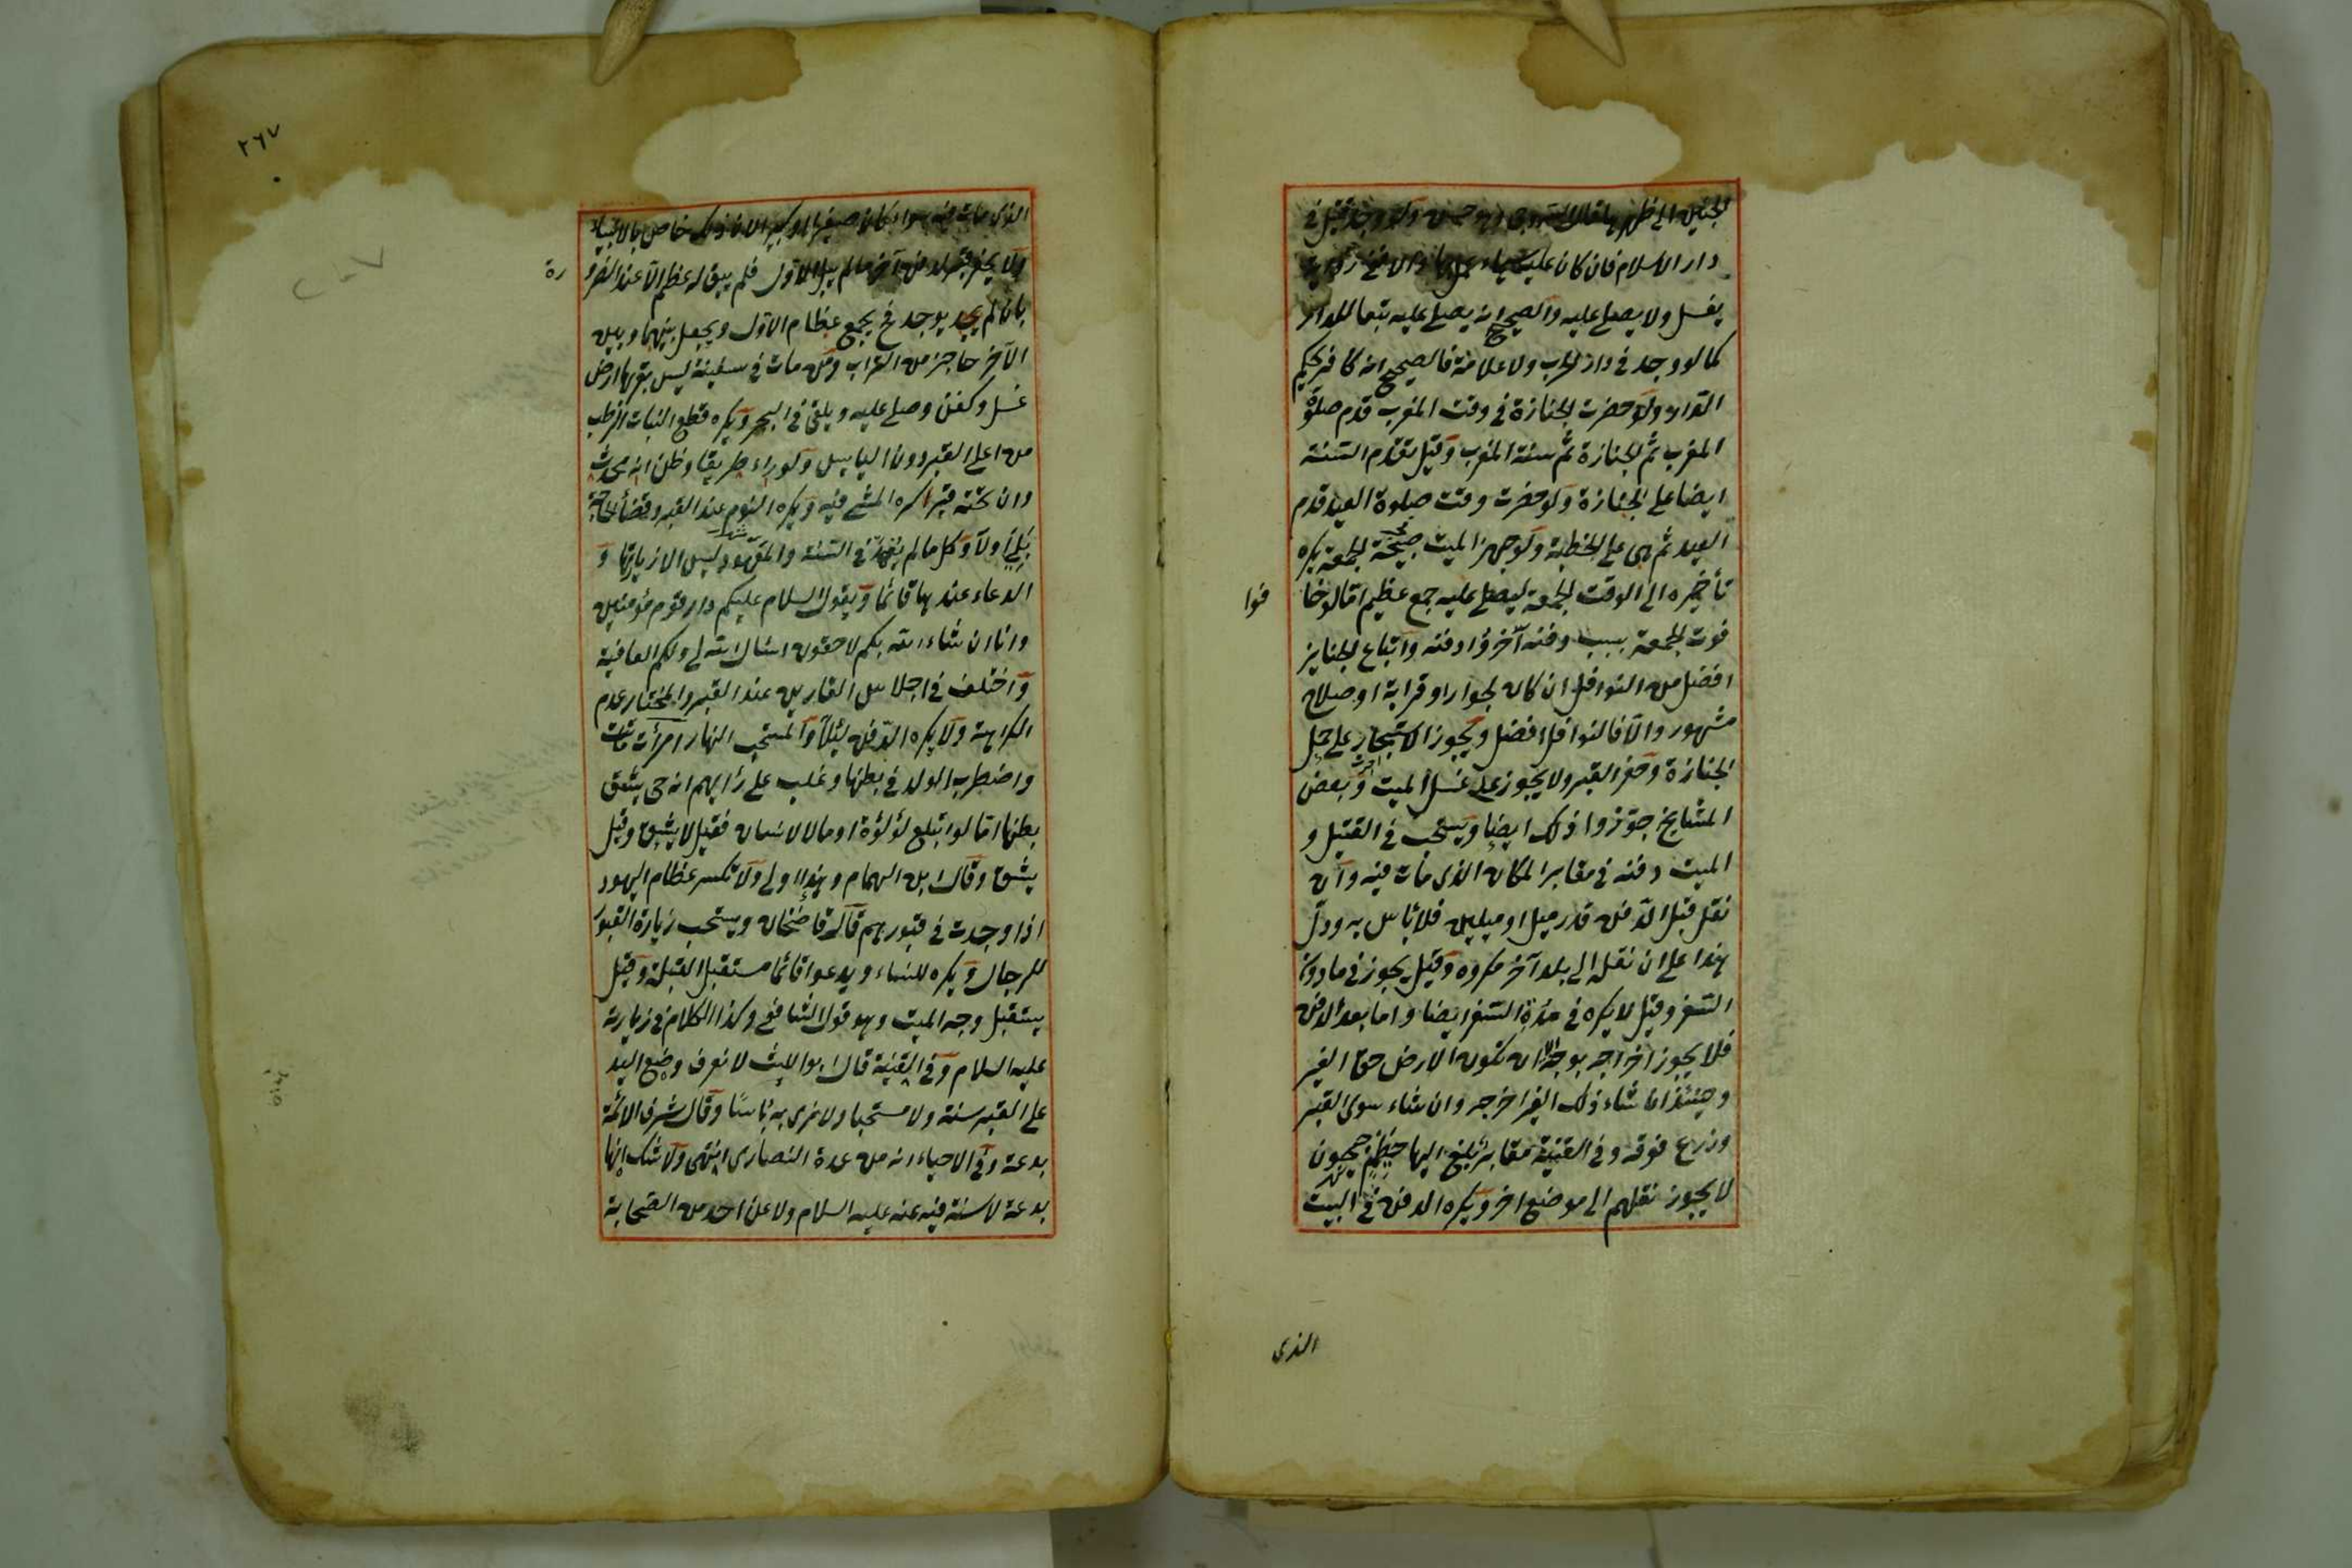 دار الاسلام فان كان عليه
يغسل ولا يصلى عليه والصحيح انه يصلى عليه تبعا للدار
كما لو وجد فى دار الحرب ولا علامة فالصحيح انه كافر بحكم
الدار ولو حضرت الجنازة فى وقت المغرب قدم صلوة
المغرب ثم الجنازة ثم سنة المغرب وقيل تقدم السنة
ايضا على الجنازة ولو حضرت وقت صلوة العيد قدم
العيد ثم هى على الخطبة ولو جهز الميت صبيحة الجمعة يكره
تأخيره الى الوقت الجمعة ليصلى عليه جمع عظيم اما لو خا
فوا
فوت الجمعة بسبب دفنه آخروا دفنه واتباع الجنايز
افضل من النوافل ان كان لجوار او قرابة او صلاح
مشهور والا فالنوافل افضل ويجوز الاستيجار على حمل
الجنازة وحفر القبر ولا يجوز على غسل الميت وبعض
المشايخ جوزوا ذلك ايضا ويستحب فى القتيل و
الميت دفنه فى مقابر المكان الذى مات فيه وان
نقل قبل الدفن قدر ميل او ميلين فلا بأس به ودل
هذا على ان نقله الى بلد آخر مكروه وقيل يجوز فى ما دون
السفر وقيل لا يكره فى مدة السفر ايضا واما بعد الدفن
فلا يجوز اخراجه بوجه الا ان تكون الارض حق الغير
وحينئذ ان شاء ذلك الغير اخرجه وان شاء سوى القبر
وزرع فوقه وفى القنية مقابر بلغ اليها جيحون
لا يجوز نقلهم الى موضع اخر ويكره الدفن فى البيت
الذى
٢٦٧
الذى مات فيه سواء كان صغيرا او كبيرا لان ذلك خاص بالانبياء
ولا يحفر قبر لدفن آخر ما لم يبل الاول فلم يبق له عظم الا عند الضرو
رة
بان لم يوجد فح يجمع عظام الاول ويجعل بينهما وبين
الآخر حاجز من التراب ومن مات فى سفينة ليس بقربها ارض
غسل وكفن وصلى عليه ويلقى فى البحر ويكره قطع النبات الرطب
من اعلى القبر دون اليابس ولو راء طريقا وظن انه محدث
وان تحته قبرا كره المشى فيه ويكره النوم عند القبر وقضاء الحاجة
بل اولا وكل ما لم يعهد فى السنة والمعهود ليس الا زيارتها و
الدعاء عندها قائما ويقول السلام عليكم دار قوم مؤمنين
وانا ان شاء الله بكم لاحقون اسأل الله لى ولكم العافية
واختلف فى اجلاس القارين عند القبر والمختار عدم
الكراهة ولا يكره الدفن ليلا والمستحب النهار امرأت ماتت
واضطرب الولد فى بطنها وغلب على رأيهم انه حى يشق
بطنها اما لو ابتلع لؤلؤة او مالا لانسان فقيل لا يشق وقيل
يشق وقال ابن الهمام وهذا اولى ولا تكسر عظام اليهود
اذا وجدت فى قبورهم قال قاضخان ويستحب زيارة القبور
للرجال ويكره للنساء ويدعوا قائما مستقبل القبلة وقيل
يستقبل وجه الميت وهو قول الشافعى وكذا الكلام فى زيارته
عليه السلام وفى القنية قال ابو الليث لا نعرف وضع اليد
على القبر سنة ولا مستحبا ولا نرى به باسا وقال شرف الائمة
بدعة وفى الاحياء انه من عدة النصارى انتهى ولا شك انها
بدعة لا سنة فيه عنه عليه السلام ولا عن احد من الصحابة